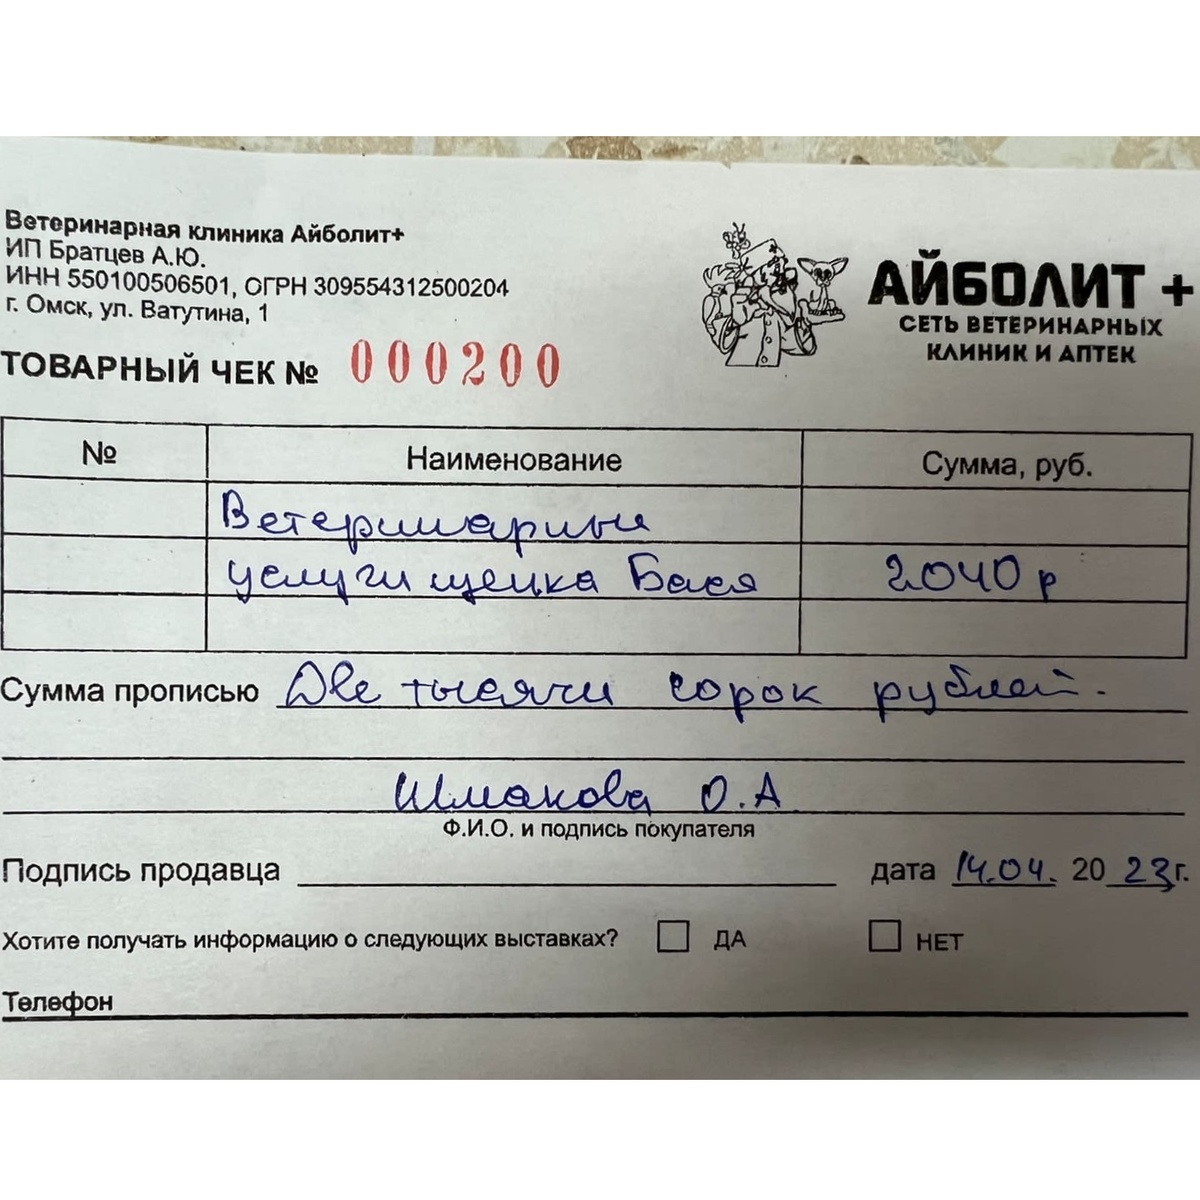 Ветеринарная клиника Айболит+
ИП Братцев А.Ю.
ИНН 550100506501, ОГРН 309554312500204
г. Омск, ул. Ватутина, 1
АЙБОЛИТ +
СЕТЬ ВЕТЕРИНАРНЫХ
КЛИНИК И АПТЕК
ТОВАРНЫЙ ЧЕК № 000200
№ Наименование Сумма, руб.
Ветеринарные
услуги щенка Бася 2040 р
Сумма прописью Две тысячи сорок рублей.
Шмакова О.А
Ф.И.О. и подпись покупателя
Подпись продавца дата 14.04. 20 23г.
Хотите получать информацию о следующих выставках? ДА НЕТ
Телефон